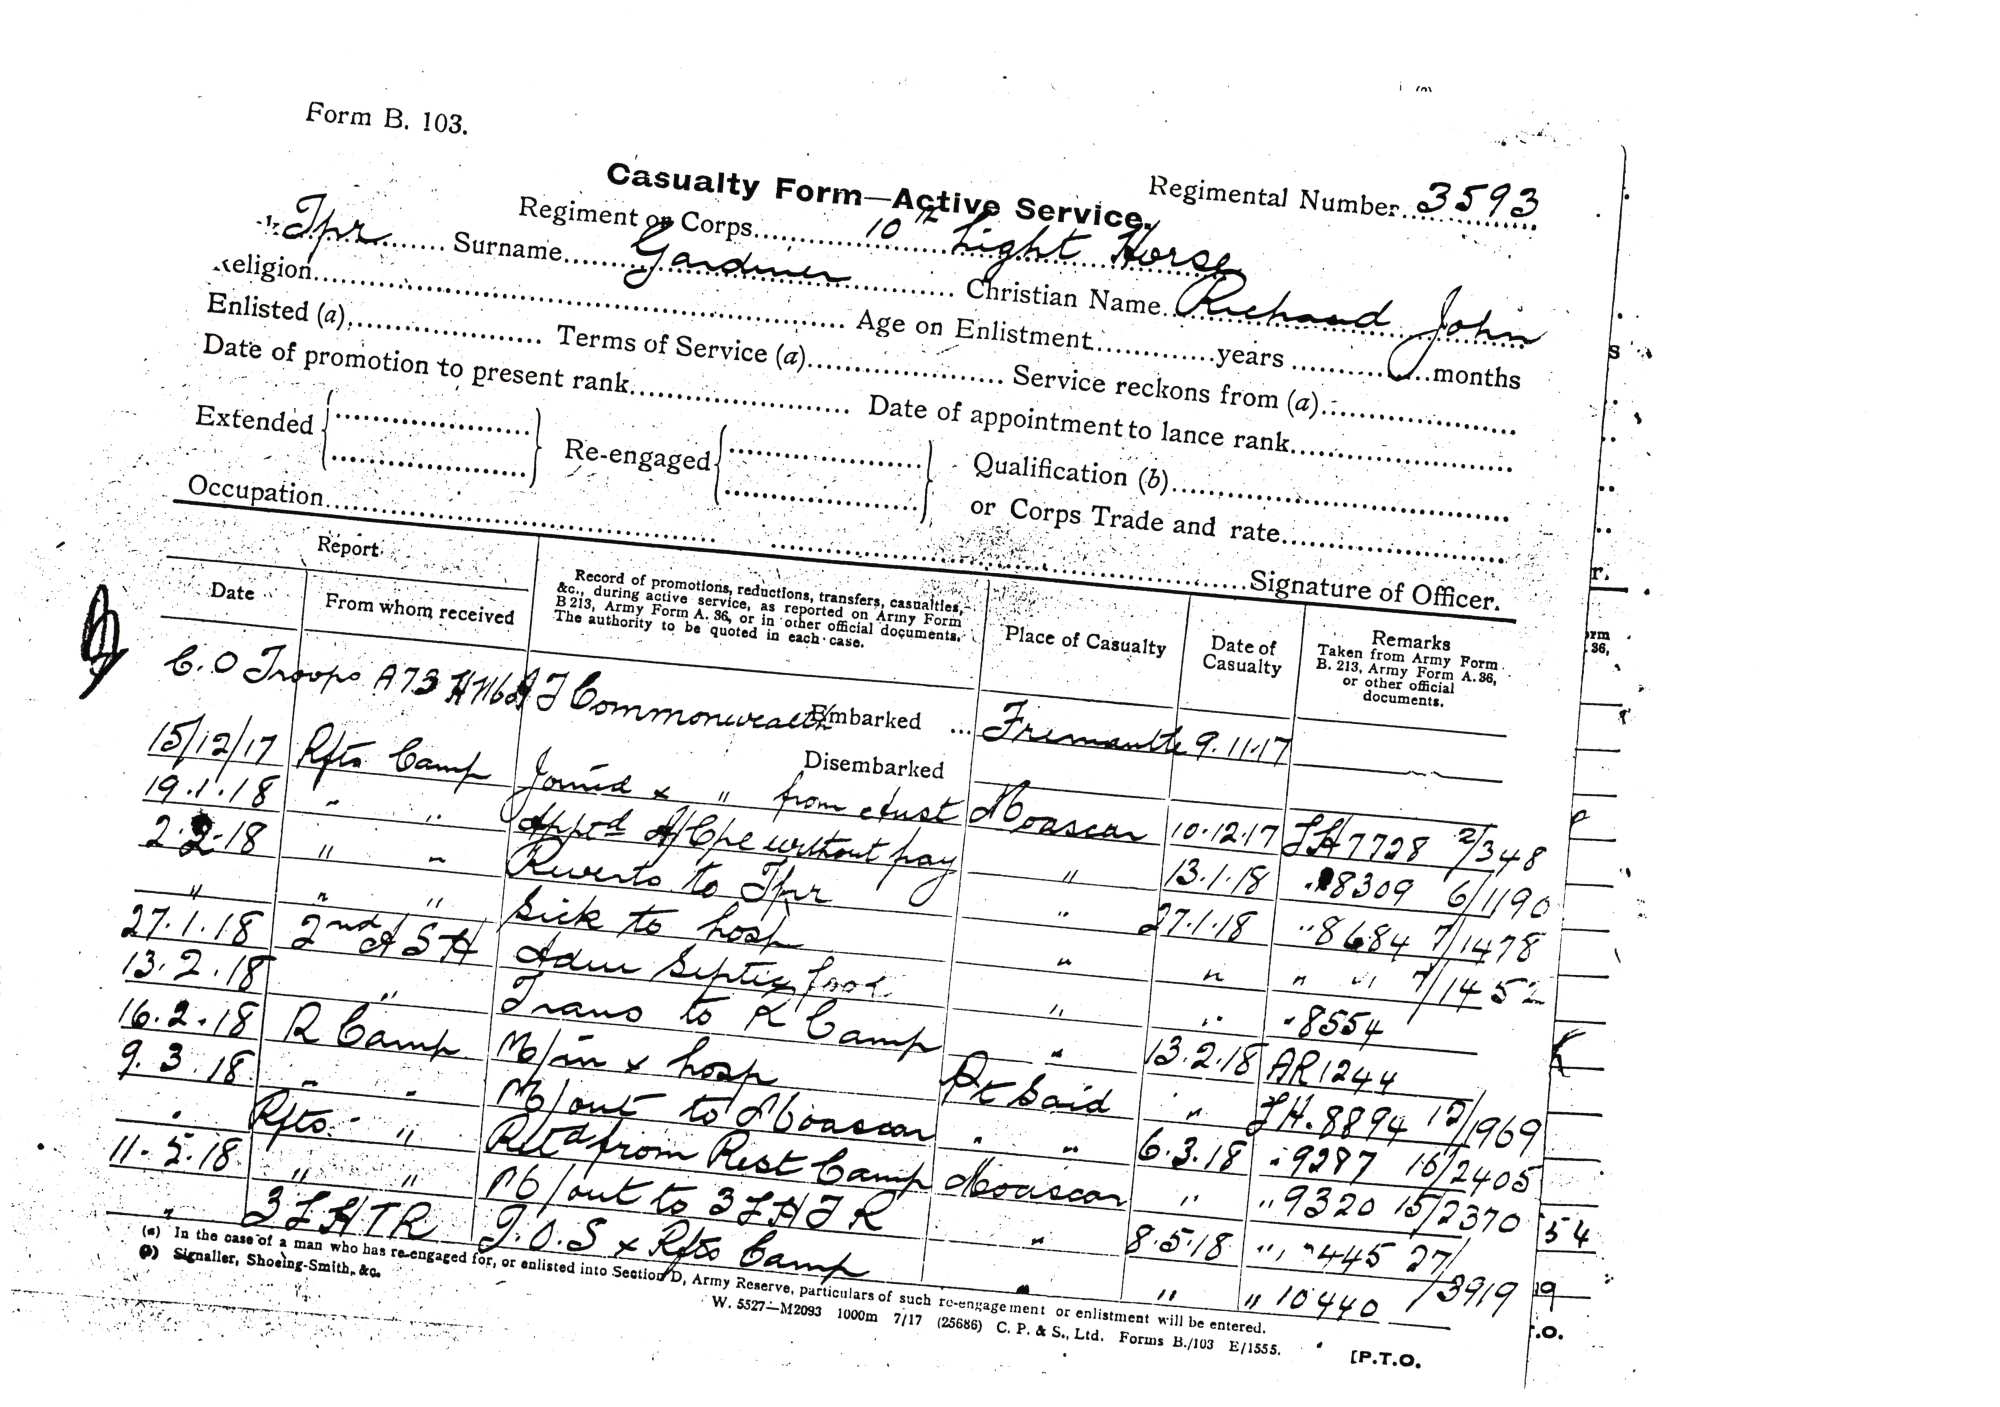 Form B. 103.
Casualty Form—Active Service.
Regimental Number 3593
Regiment or Corps 10th Light Horse
Tpr Surname Gardiner Christian Name Richard John
Religion Age on Enlistment years months
Enlisted (a) Terms of Service (a) Service reckons from (a)
Date of promotion to present rank Date of appointment to lance rank
Extended Re-engaged Qualification (b)
or Corps Trade and rate
Occupation
Signature of Officer.
Report
Date From whom received Record of promotions, reductions, transfers, casualties, &c., during active service, as reported on Army Form B 213, Army Form A. 36, or in other official documents. The authority to be quoted in each case. Place of Casualty Date of Casualty Remarks Taken from Army Form B. 213, Army Form A. 36, or other official documents.
C. O Troops A73 Commonwealth Embarked ... Fremantle 9.11.17
Disembarked
15/12/17 Rfts Camp Joined x " from Aust Moascar 10.12.17 LH 7728 2/348
19.1.18 " " Apptd A/Cpl without pay " 13.1.18 " 8309 6/1190
2.2.18 " " Reverts to Tpr " 27.1.18 " 8684 7/1478
" " " Sick to hosp " " " " 7/1452
27.1.18 2nd A S H Adm Septic foot " " " 8554
13.2.18 " Trans to R Camp " 13.2.18 AR1244
16.2.18 R Camp M/in x hosp Pt Said " LH. 8894 12/1969
9.3.18 " " M/out to Moascar " " 6.3.18 " 9287 16/2405
" Rfts " Retd from Rest Camp Moascar " " 9320 15/2370
11.5.18 " " M/out to 3 L H T R " 8.5.18 " " 445 27/3919
" 3 L H T R T.O.S x Rfts Camp " " " 10440
(a) In the case of a man who has re-engaged for, or enlisted into Section D, Army Reserve, particulars of such re-engagement or enlistment will be entered.
(b) Signaller, Shoeing-Smith, &c.
W. 5527—M2093 1000m 7/17 (25686) C. P. & S., Ltd. Forms B./103 E/1555.
[P.T.O.